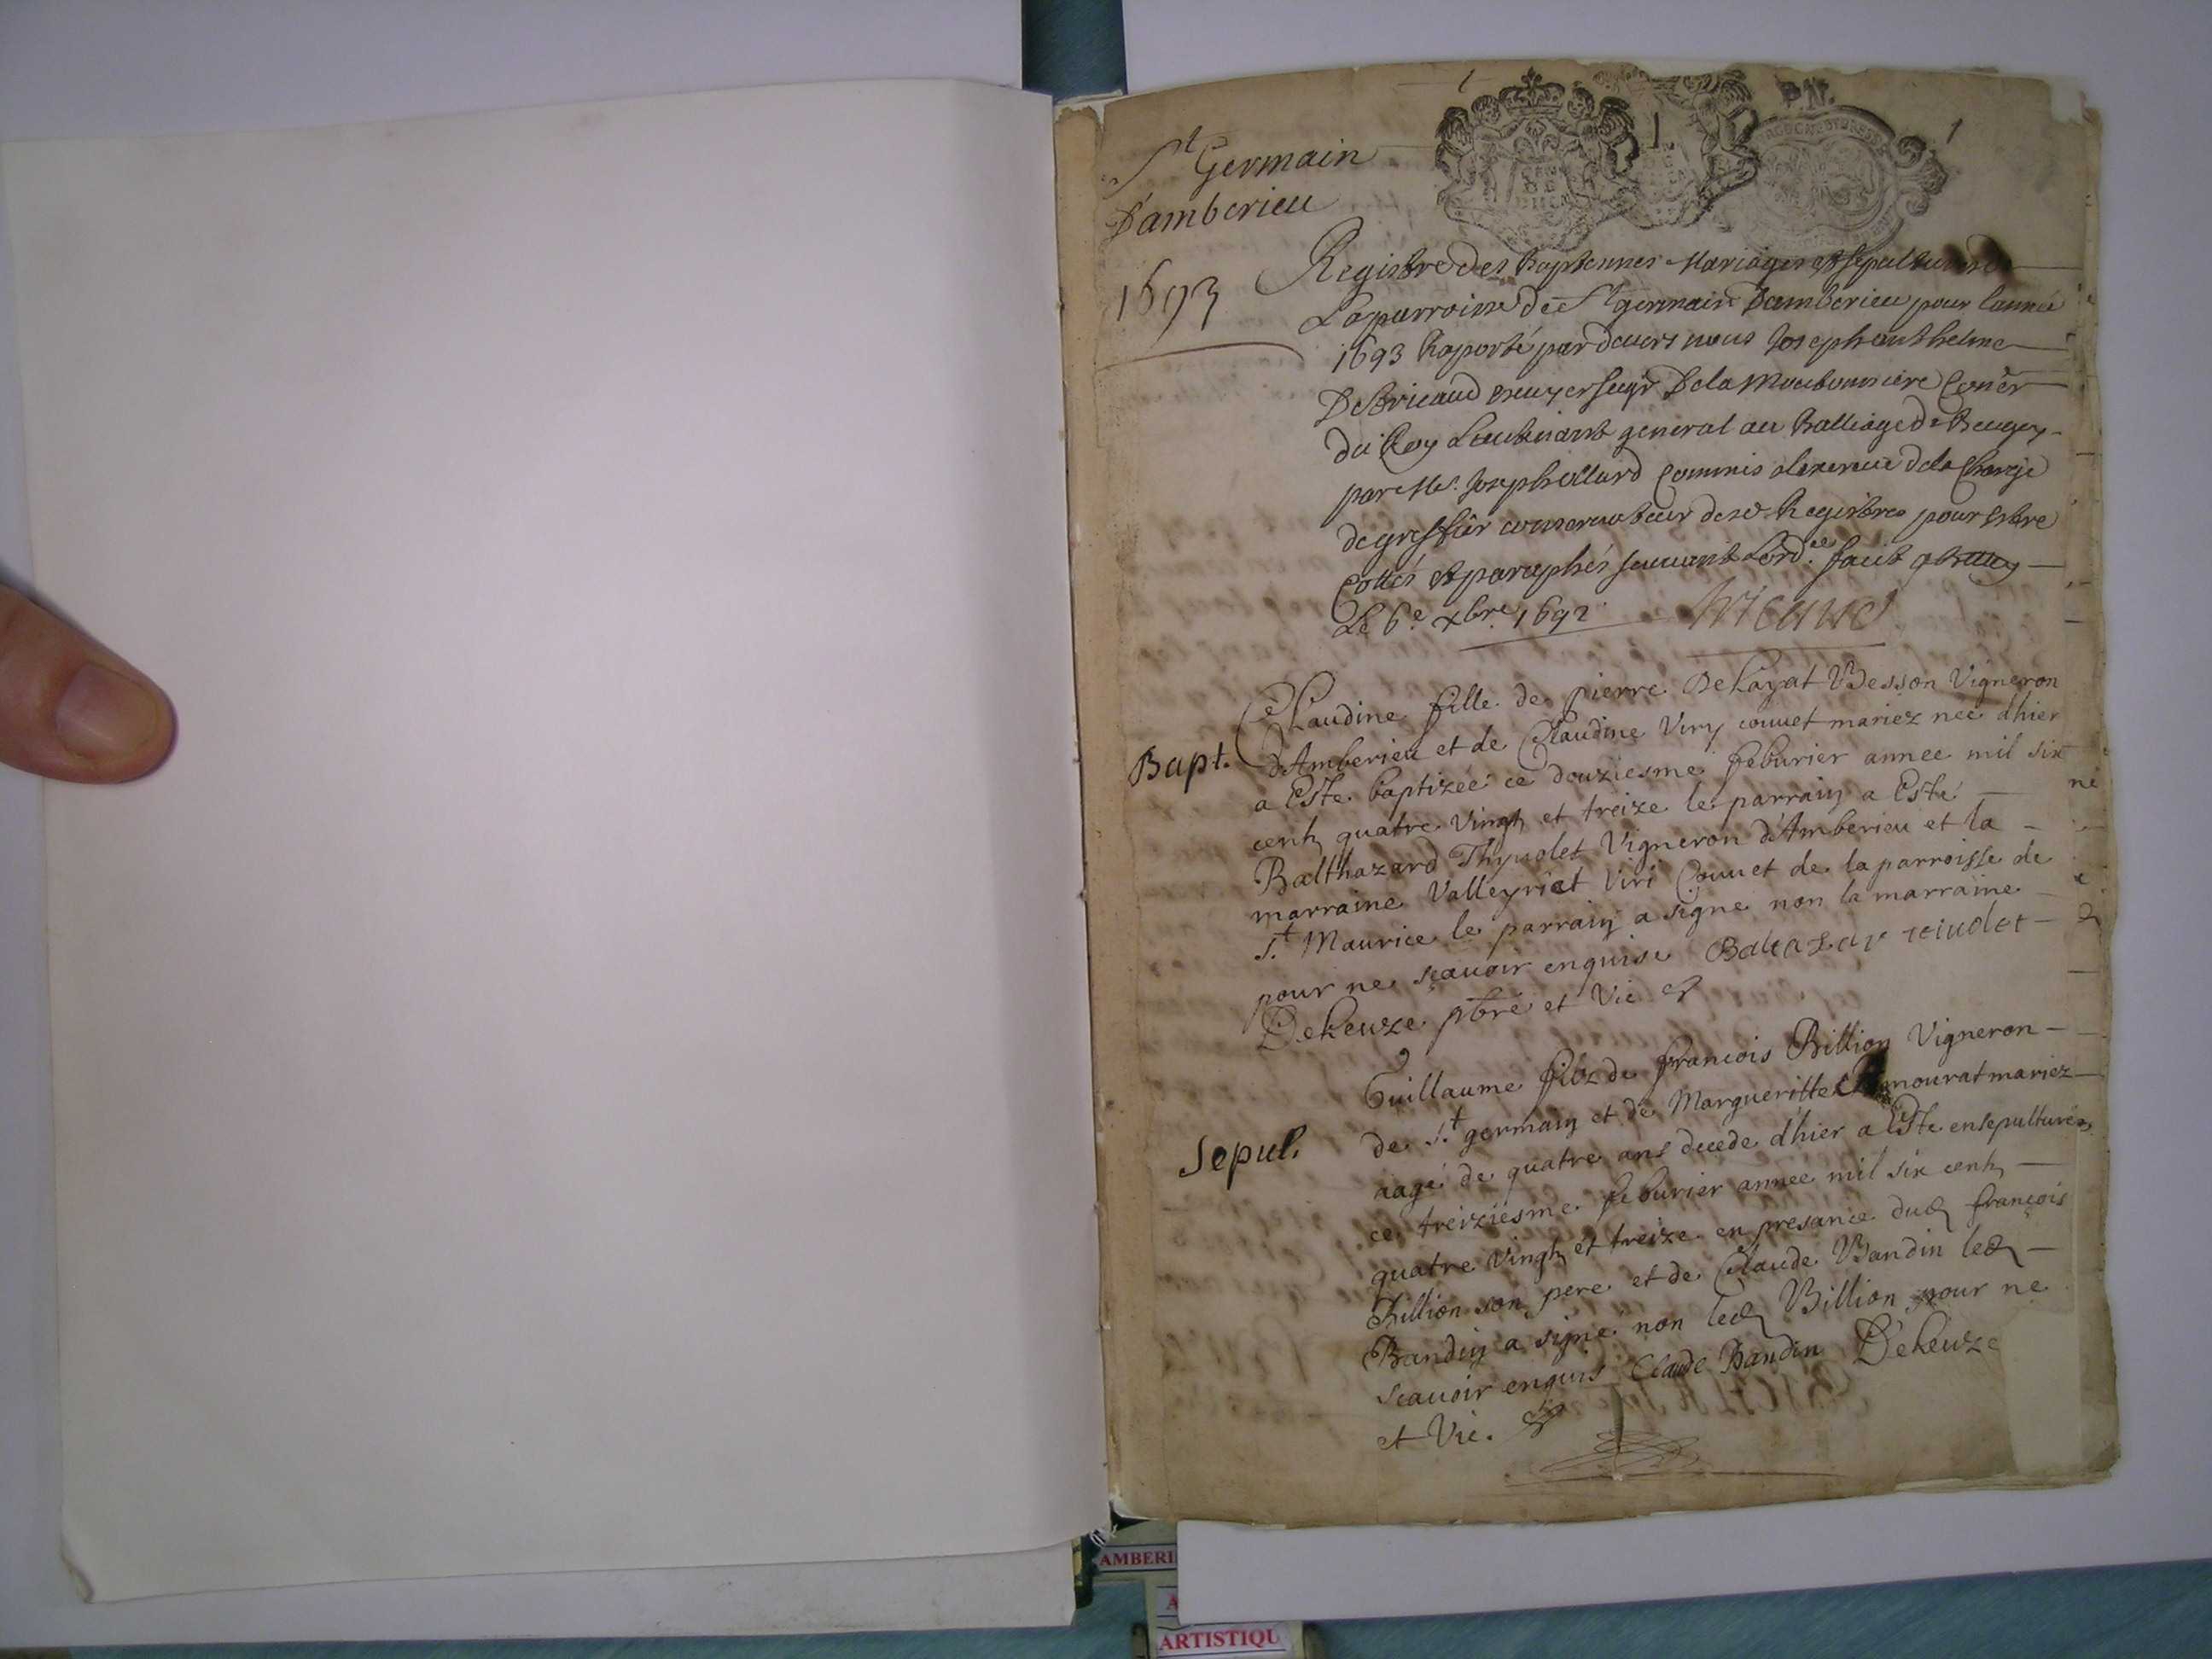 1
1
St Germain
D'amberieu
1693
Registre des Baptesmes Mariages et sepultures de
La parroisse de St germain Damberieu pour lannée
1693 Raporté pardeuers nous Joseph anthelme
De Bricaud escuyer seigr De la Coner
du Roy Lieutenant general au Balliage de Beugey
par Me. Joseph Commis a lexercice de la Charge
de greffier conseruateur desd. Registres pour estre
Cottés et paraphés suiuant Lordce. faict
Le 6e. xbre. 1692. Bricaud
Bapt.
Claudine fille de pierre Dehayat Besson Vigneron
d'Amberieu et de Claudine Viry couuet mariez née d'hier
a Esté baptizée ce douziesme feburier annee mil six
cents quatre vingts et treize le parrain a Esté
Balthazard Thynolet Vigneron d'Amberieu et la
marraine Valleyriet Viri Couuet de la parroisse de
St. Maurice le parrain a signé non la marraine
pour ne sçauoir enquise Baltazar
Dekeuze pbre et Vic
Sepul.
Guillaume filz de francois Billion Vigneron
de St. germain et de Margueritte mariez
aagé de quatre ans decedé d'hier a Esté ensepulturé
ce treiziesme feburier annee mil six cents
quatre vingts et treize en presance dud françois
Billion son pere et de Claude Bandin led
Bandin a signé non led Billion pour ne
scauoir enquis Claude Bandin Dekeuze
et Vic.
AMBERI
A
ARTISTIQU